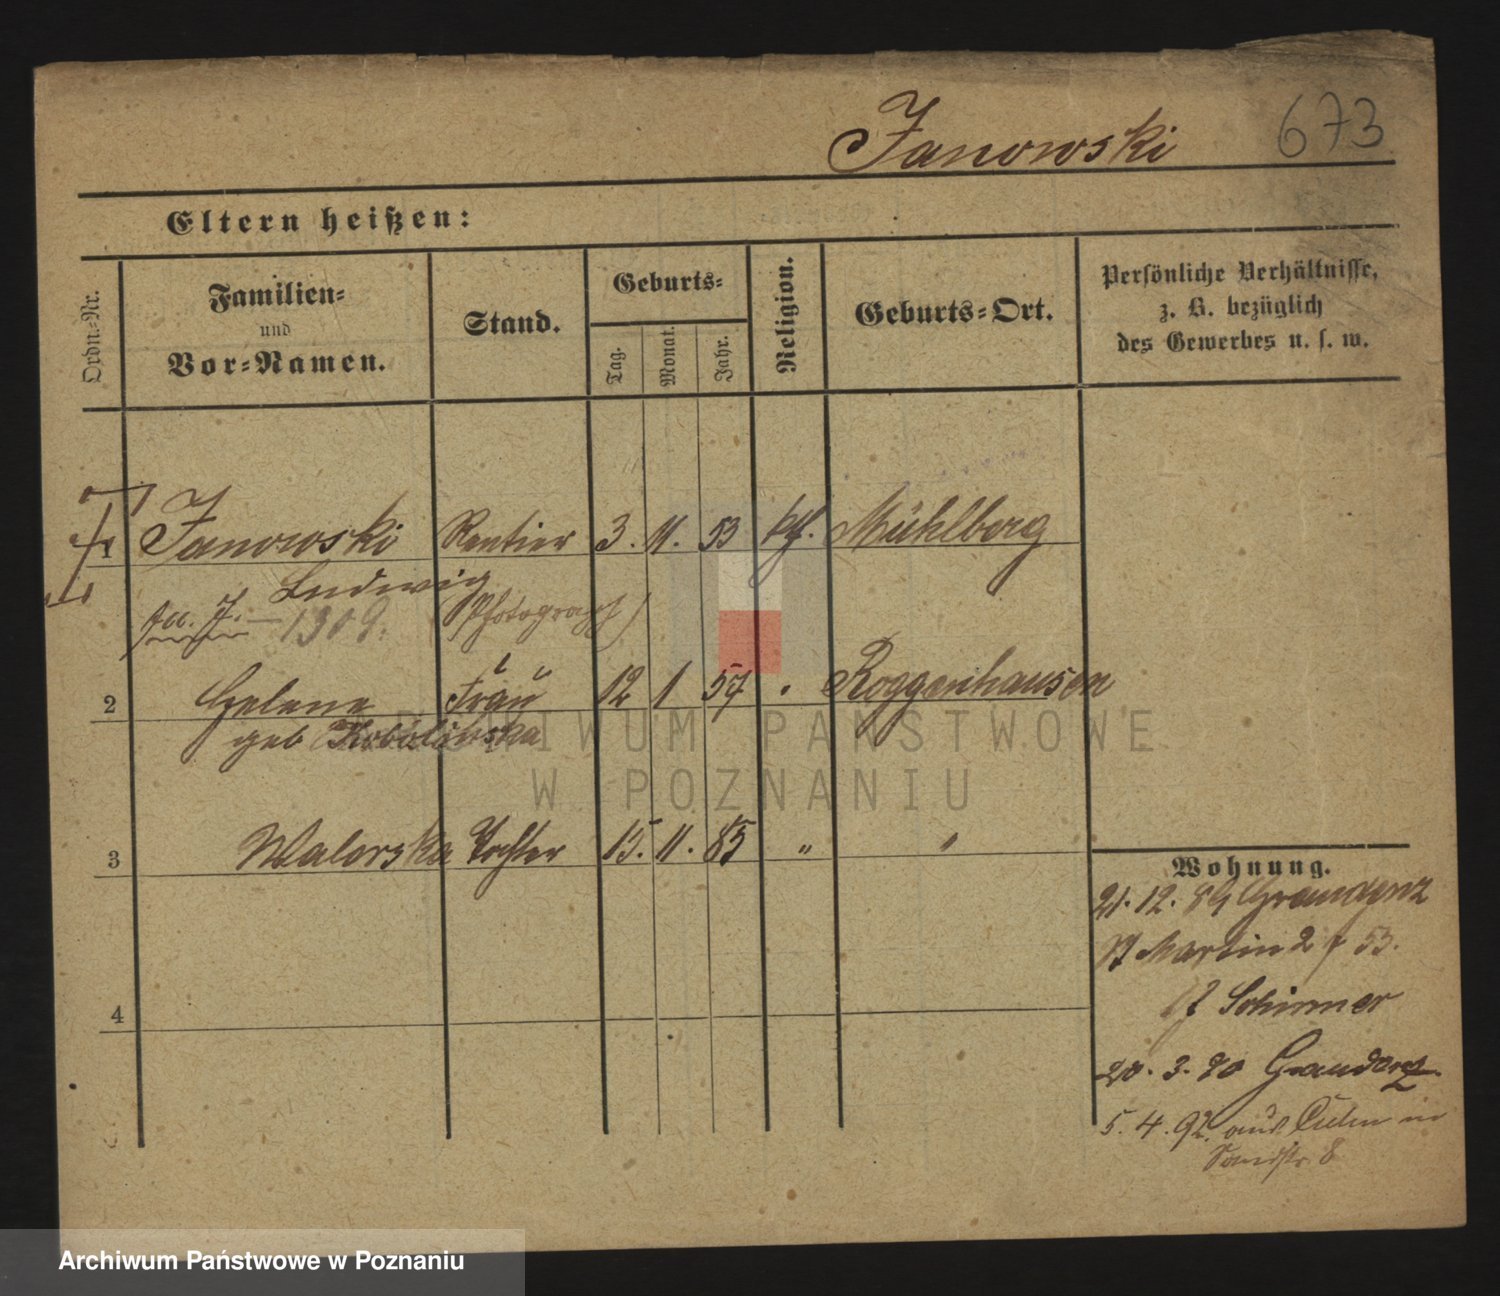 Janowski 673
Eltern heißen:
Ordn.-Nr.
Familien-
und
Vor-Namen.
Stand.
Geburts-
Tag.
Monat.
Jahr.
Religion.
Geburts-Ort.
Persönliche Verhältnisse,
z. B. bezüglich
des Gewerbes u. s. w.
1 Janowski Rentier 3. 11. 53 kth. Mühlberg
Ludwig
1309. (Photograph)
2 Helene Frau 12 1 57 " Roggenhausen
geb Kobalinska
3 Walerska Tochter 15. 11. 85 " "
Wohnung.
21. 12. 89 Graudenz
St Martin 2 53.
Schirmer
20. 3. 90 Graudenz
4
5. 4. 92. aus Culm in
8
ARCHIWUM PAŃSTWOWE
W POZNANIU
Archiwum Państwowe w Poznaniu